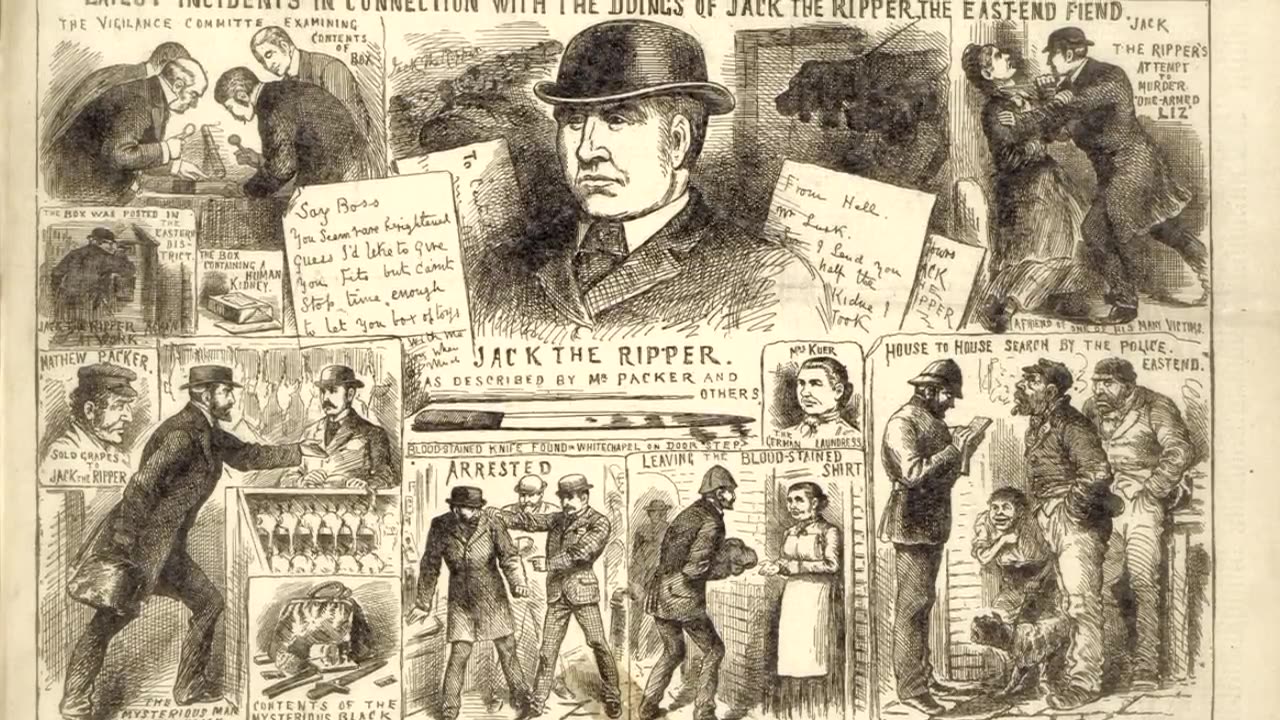 LATEST INCIDENTS IN CONNECTION WITH THE DOINGS OF JACK THE RIPPER, THE EAST-END FIEND.
THE VIGILANCE COMMITTE EXAMINING
CONTENTS
OF
BOX
THE BOX WAS POSTED IN
THE
EASTERN
DIS-
TRICT.
JACK THE RIPPER AGAIN
AT WORK
THE BOX
CONTAINING A
HUMAN
KIDNEY.
Jack the Ripper
To
Say Boss
You Seem rare frightened
guess I'd like to give
you fits but can't
Stop time enough
to let you box of toys
From Hell.
Mr Lusk.
I Send you
half the
Kidne I
Took
Yours
JACK
THE
RIPPER
JACK
THE RIPPER'S
ATTEMPT
TO
MURDER.
"ONE-ARMED
LIZ"
A FRIEND OF ONE OF HIS MANY VICTIMS.
JACK THE RIPPER.
AS DESCRIBED BY MR PACKER AND
OTHERS
BLOOD-STAINED KNIFE FOUND IN WHITECHAPEL ON DOOR STEP
MATHEW PACKER.
SOLD GRAPES
TO
JACK THE RIPPER
THE
MYSTERIOUS MAN
CONTENTS OF THE
MYSTERIOUS BLACK
ARRESTED
LEAVING THE BLOOD-STAINED
SHIRT
MRS KUER
THE
GERMAN LAUNDRESS
HOUSE TO HOUSE SEARCH BY THE POLICE.
EASTEND.